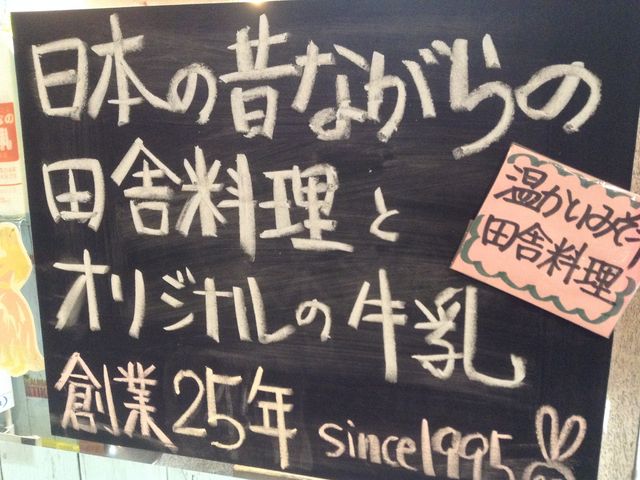 日本の昔ながらの
田舎料理と
オリジナルの牛乳
創業25年 since1995
温かいみそ汁
田舎料理